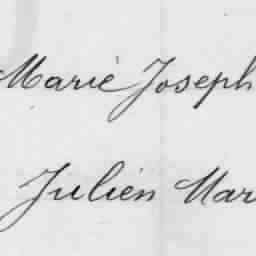 Marie Joseph
Julien Mar